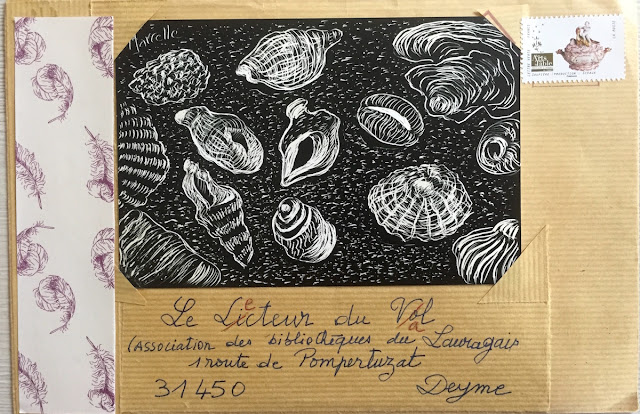 Marcelle
Le Liecteur du Vol a
(Association des bibliothèques du Lauragais
1 route de Pompertuzat
31450 Deyme